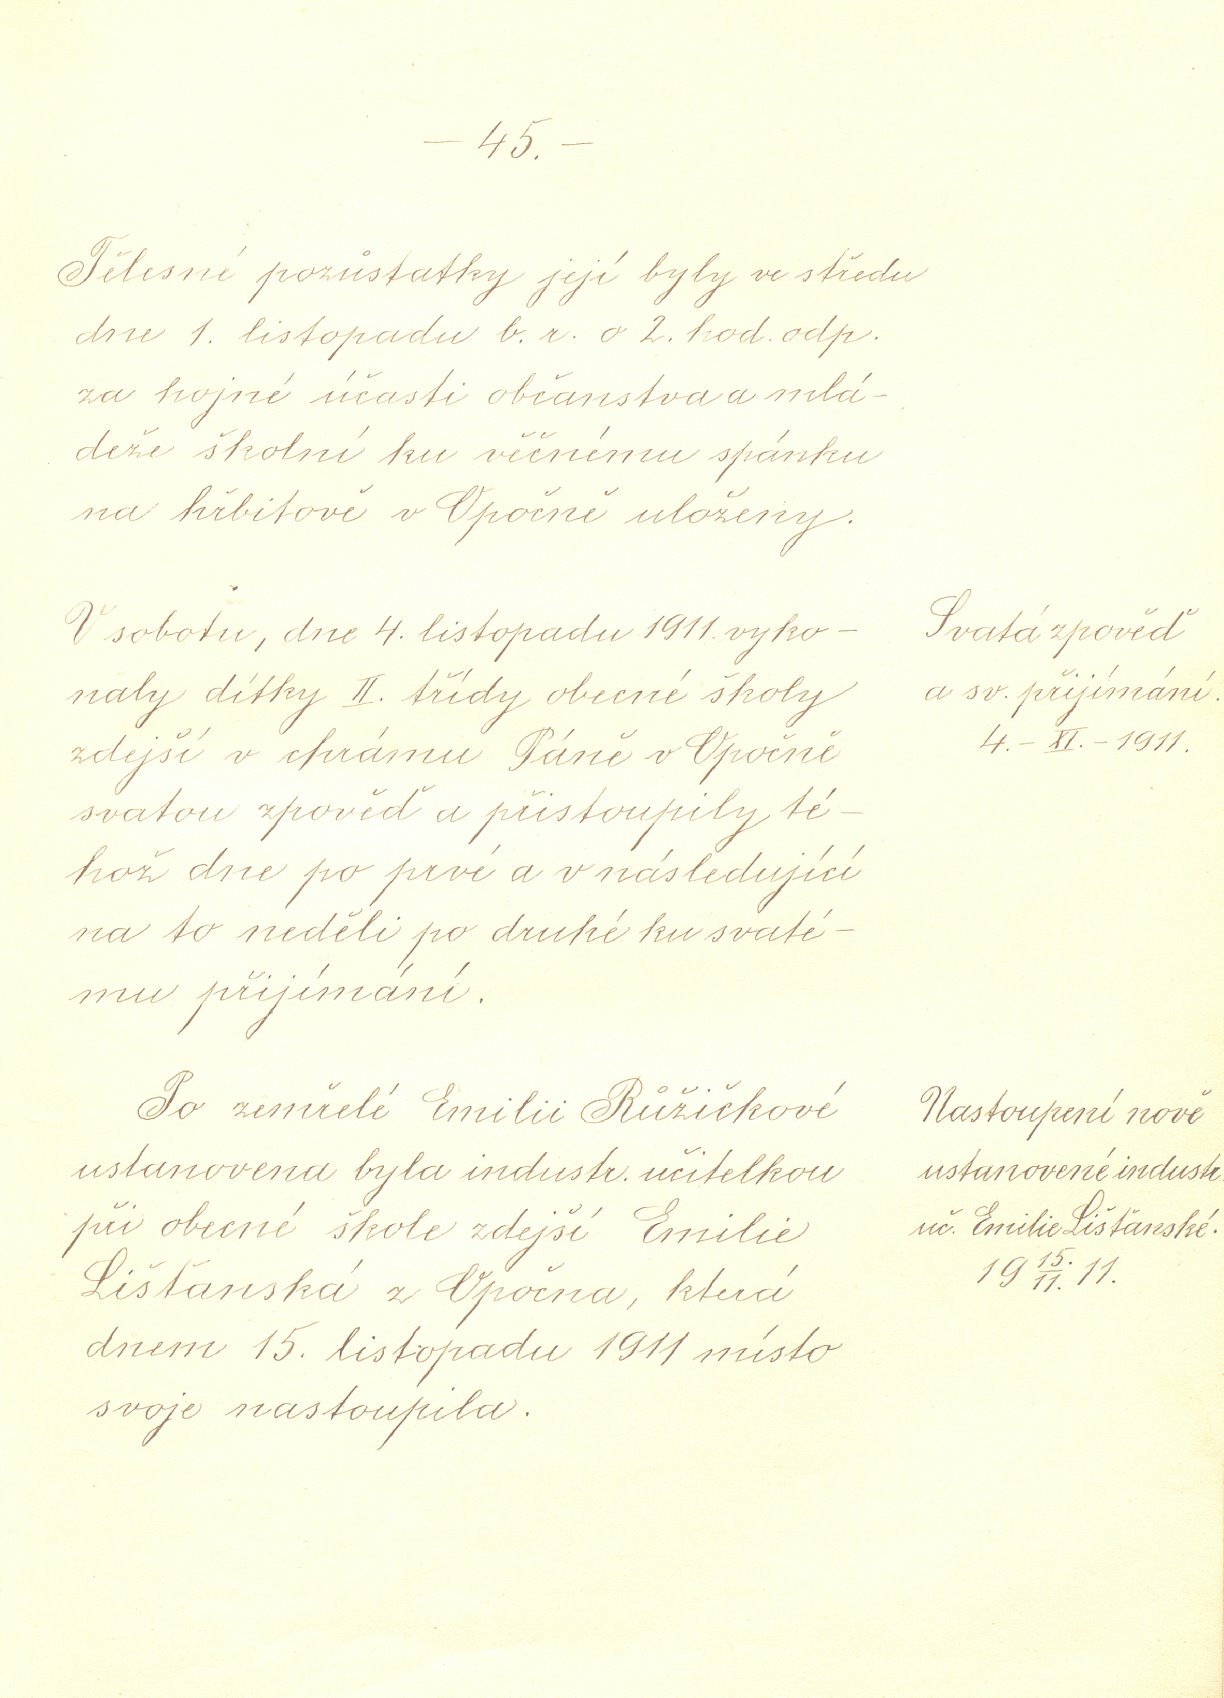 — 45. —
Tělesné pozůstatky její byly ve středu
dne 1. listopadu b. r. o 2. hod. odp.
za hojné účasti občanstva a mlá-
deže školní ku věčnému spánku
na hřbitově v Opočně uloženy.
V sobotu, dne 4. listopadu 1911 vyko-
naly dítky II. třídy obecné školy
zdejší v chrámu Páně v Opočně
svatou zpověď a přistoupily té-
hož dne po prvé a v následující
na to neděli po druhé ku svaté-
mu přijímání.
Svatá zpověď
a sv. přijímání.
4. - XI. - 1911.
Po zemřelé Emilii Růžičkové
ustanovena byla industr. učitelkou
při obecné škole zdejší Emilie
Lišťanská z Opočna, která
dnem 15. listopadu 1911 místo
svoje nastoupila.
Nastoupení nově
ustanovené industr.
uč. Emilie Lišťanské.
19 15./11. 11.